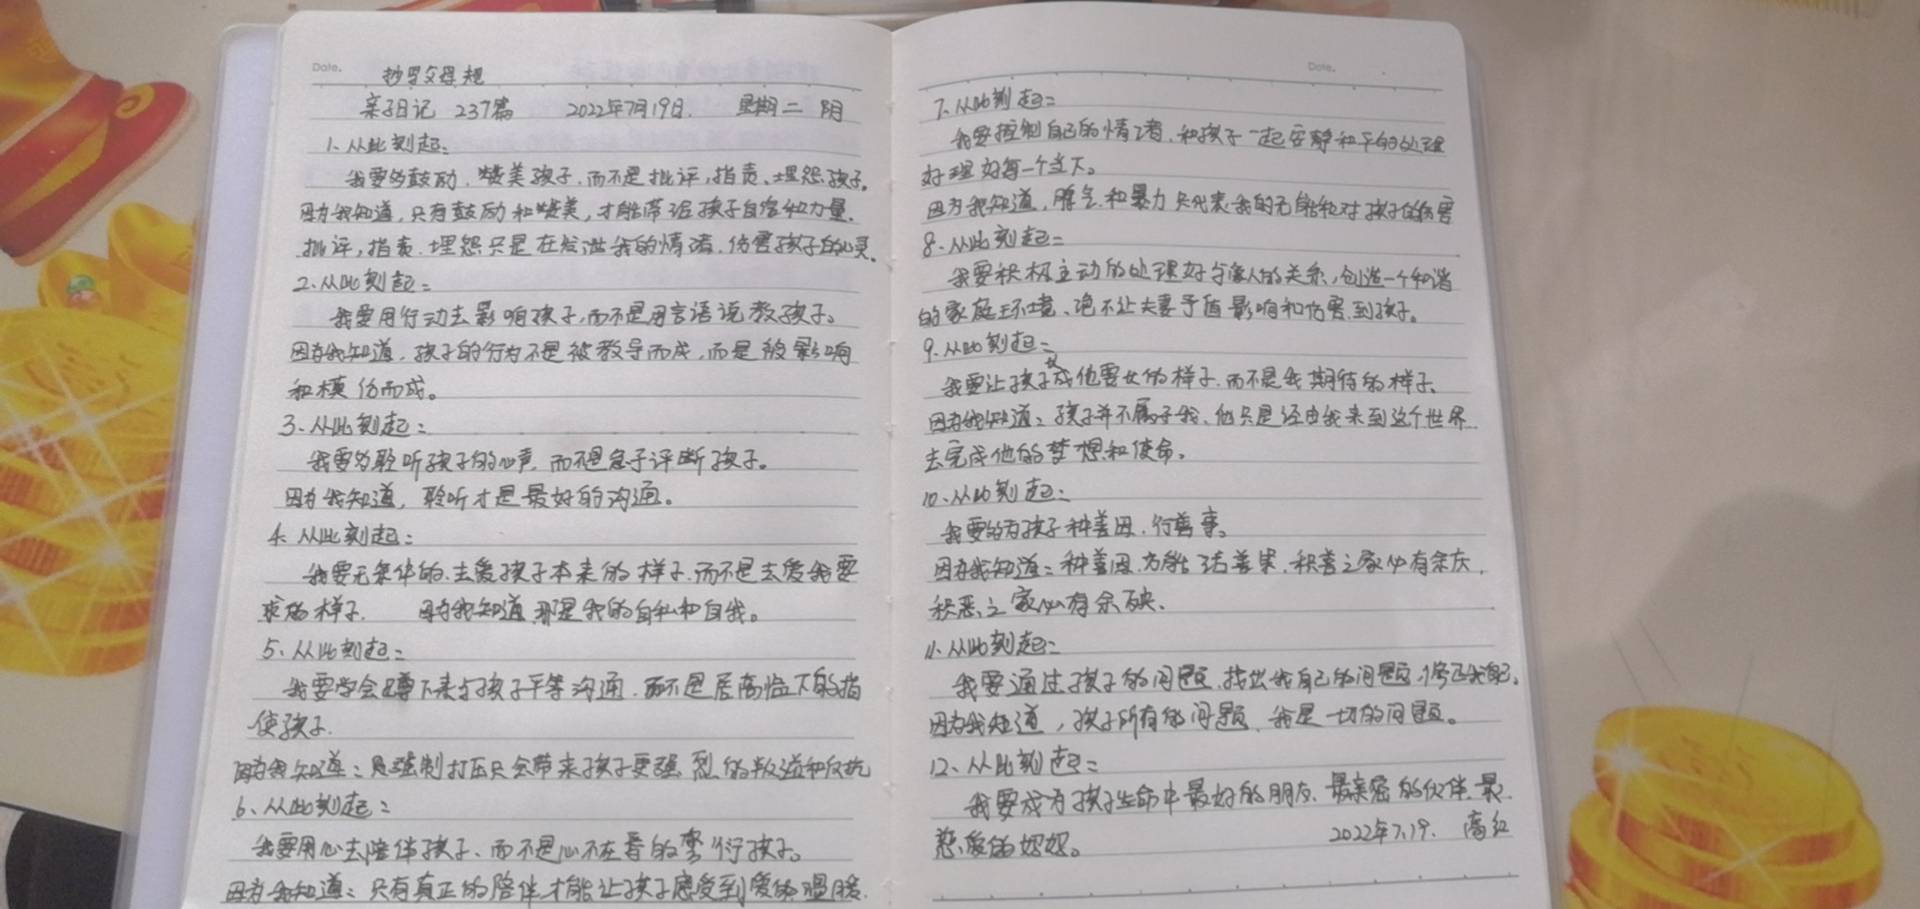 Date.
抄写父母规
亲子日记 237篇 2022年7月19日. 星期二 阴
1. 从此刻起:
我要多鼓励、赞美孩子,而不是批评,指责、埋怨孩子。
因为我知道,只有鼓励和赞美,才能带给孩子自信和力量.
批评,指责.埋怨只是在发泄我的情绪、伤害孩子的心灵。
2.从此刻起:
我要用行动去影响孩子,而不是用言语说教孩子。
因为我知道,孩子的行为不是被教导而成,而是被影响
和模仿而成。
3、从此刻起:
我要多聆听孩子的心声,而不是急于评断孩子。
因为我知道,聆听才是最好的沟通。
4. 从此刻起:
我要无条件的.去爱孩子本来的样子.而不是去爱我要
求的样子. 因为我知道那是我的自私和自我。
5、从此刻起:
我要学会蹲下来与孩子平等沟通.而不是居高临下的指
使孩子.
因为我知道:强制打压只会带来孩子更强烈的叛逆和反抗
6、从此刻起:
我要用心去陪伴孩子、而不是心不在焉的敷衍孩子。
因为我知道:只有真正的陪伴才能让孩子感受到爱的温暖.
Date.
7、从此刻起:
我要控制自己的情绪.和孩子一起安静和平的处理
好理好每一个当下。
因为我知道,脾气和暴力只代表我的无能和对孩子的伤害
8、从此刻起:
我要积极主动的处理好与家人的关系,创造一个和谐
的家庭环境、绝不让夫妻矛盾影响和伤害到孩子。
9、从此刻起:
我要让孩子成他要女的样子.而不是我期待的样子.
因为我知道:孩子并不属于我、他只是经由我来到这个世界
去完成他的梦想和使命。
10、从此刻起:
我要多为孩子种善因、行善事。
因为我知道:种善因,方能结善果.积善之家必有余庆,
积恶之家必有余殃.
11、从此刻起:
我要通过孩子的问题.找出我自己的问题,修正我自己.
因为我知道,孩子所有的问题、我是一切的问题。
12、从此刻起:
我要成为孩子生命中最好的朋友、最亲密的伙伴.最
慈爱的妈妈。 2022年7.19. 高红